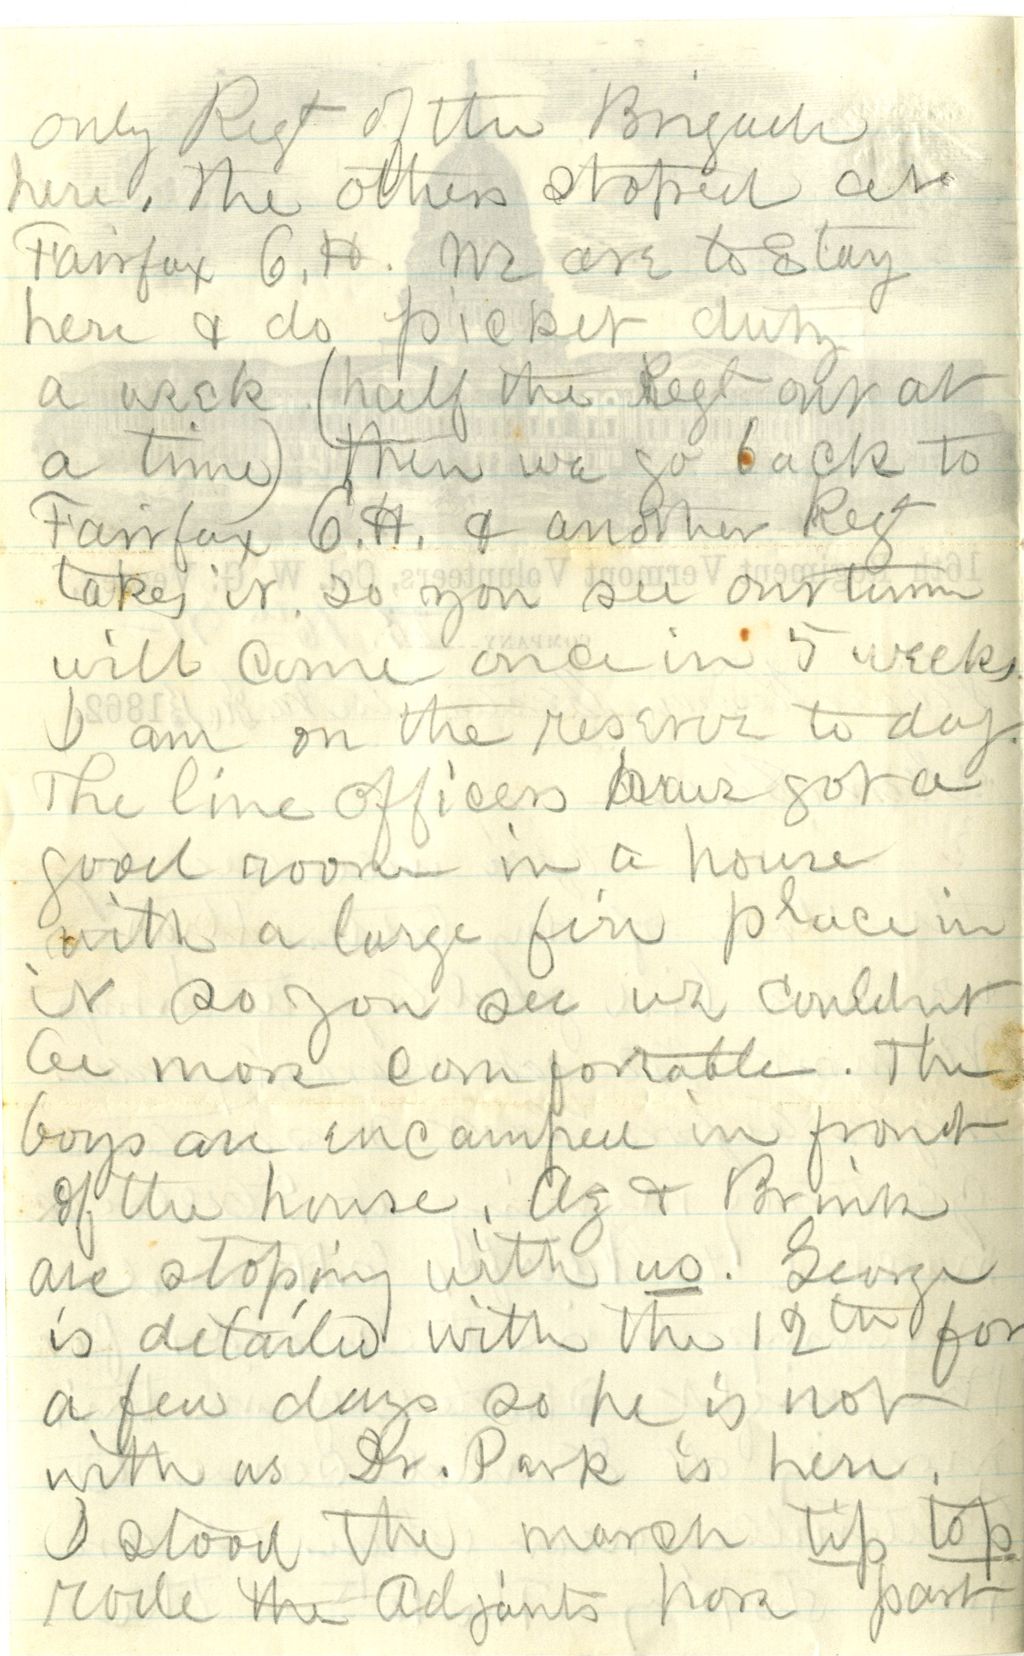 only Regt of the Brigade
here. The others stoped at
Fairfax C.H. We are to stay
here & do picket duty
a week (half the Regt out at
a time) then we go back to
Fairfax C.H. & another Regt
takes it. so you see our turn
will come once in 5 weeks.
I am on the reserve to day.
The line officers have got a
good room in a house
with a large fire place in
it so you see we couldnt
be more comfortable. The
boys are encamped in front
of the house. Az & Brink
are stoping with us. George
is detailed with the 12th for
a few days so he is not
with us Dr. Park is here.
I stood the march tip top
rode the Adjants horse part
16th Regiment Vermont Volunteers, Col. W. G.
COMPANY
1862